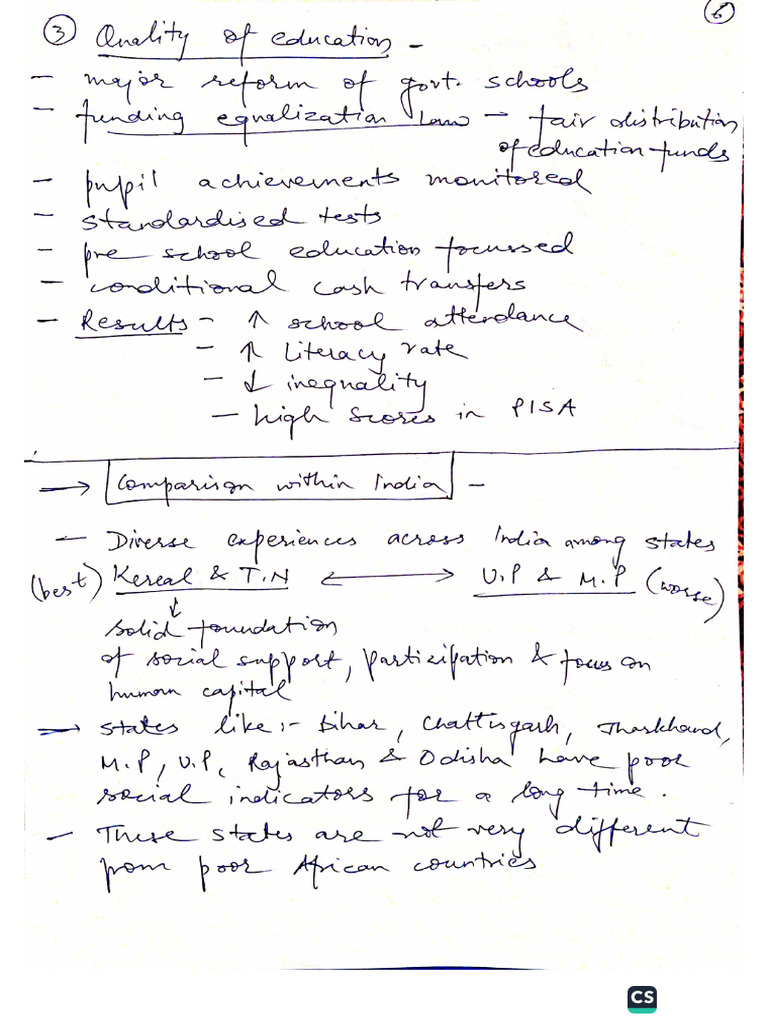 6
③ Quality of education -
- major reform of govt. schools
- funding equalization Law - fair distribution
of education funds
- pupil achievements monitored
- standardised tests
- pre school education focussed
- conditional cash transfers
- Results - ↑ school attendance
- ↑ Literacy rate
- ↓ inequality
- high scores in PISA
→ Comparison within India -
- Diverse experiences across India among states
(best) Kereal & T.N ⟷ U.P & M.P (worse)
↓
solid foundation
of social support, participation & focus on
human capital
→ states like :- Bihar, Chattisgarh, Jharkhand,
M.P, U.P, Rajasthan & Odisha have poor
social indicators for a long time.
- These states are not very different
from poor African countries
CS